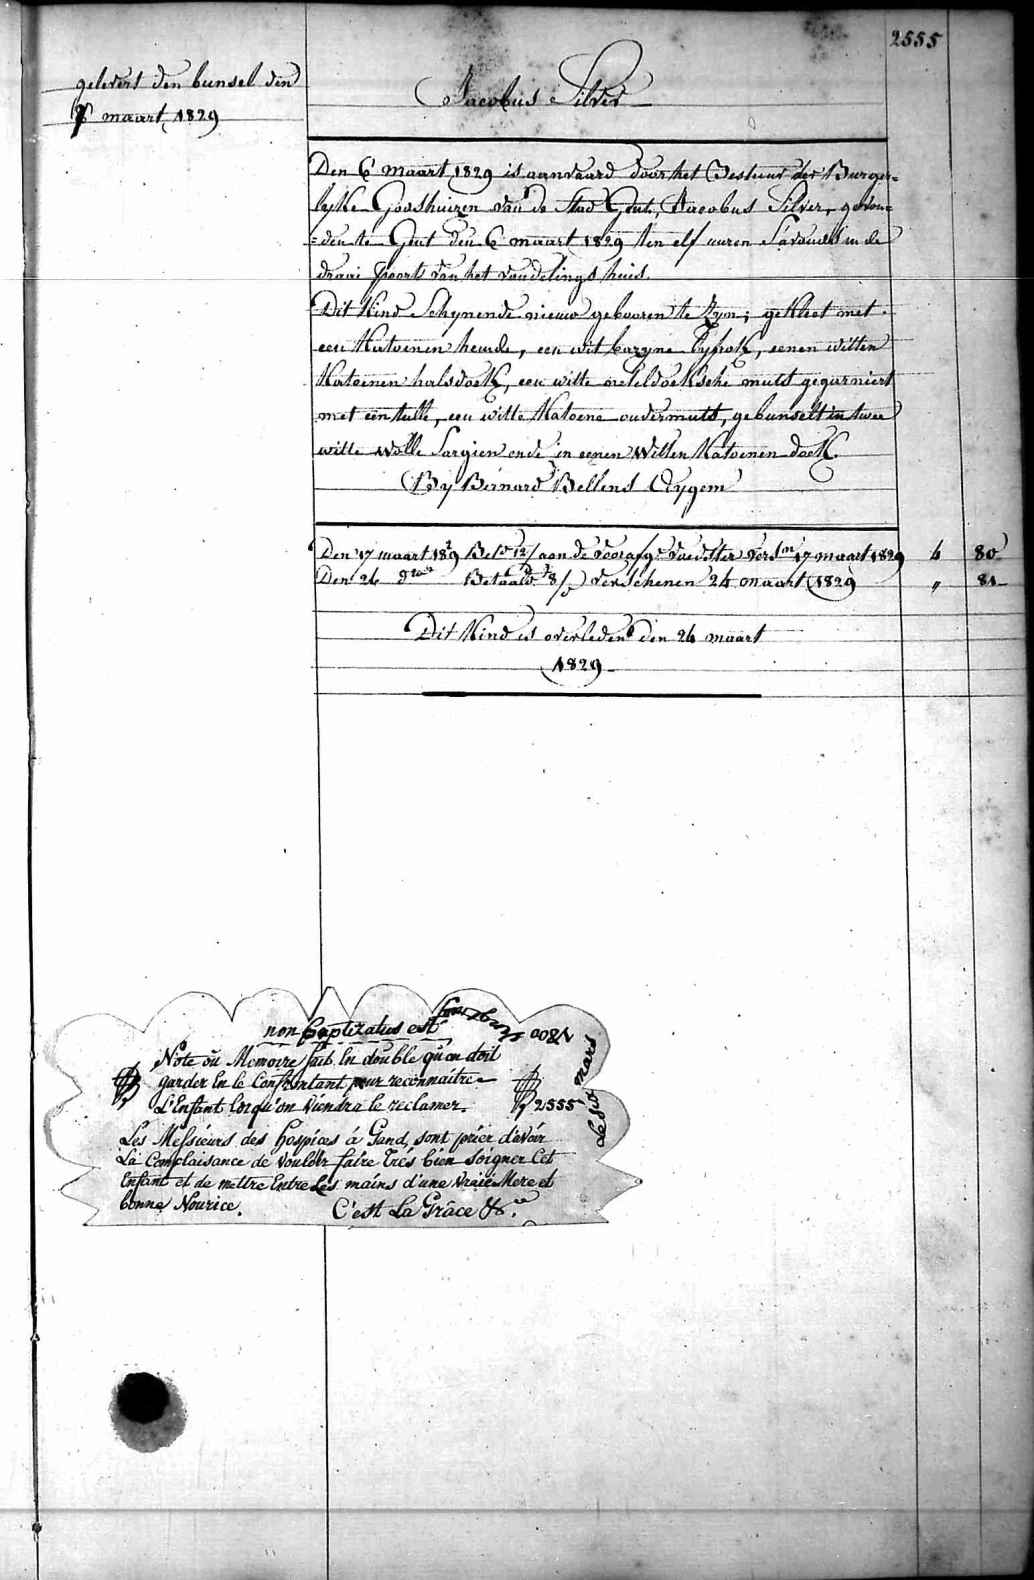 2555
gelevert den bunsel den
8 maart 1829
Jacobus Silver
Den 6 maart 1829 is aanvaard door het Bestuur der Burger=
lyke Godshuizen van de Stad Gent, Jacobus Silver, gevon=
=den te Gent den 6 maart 1829 ten elf uren S'avonds in de
draai poorte van het vondelings huis.
Dit Kind Schynende nieuw gebooren te Zyn; gekleet met
een Katoenen hemde, een wit bazyne Lyfrok, eenen witten
Katoenen halsdoek, een witte neteldoeksche muts gegarniert
met een tulle, een witte Katoene ondermuts, gebunselt in twee
witte wolle Sargien ende in eenen Witten Katoenen doek.
By Bernard Bellens Edygem
Den 17 maart 1829 aan de voedster 17 maart 1829 4 80
Den 24 Betaald verschenen 24 maart 1829 " 81
Dit Kind is overleden den 24 maart
1829
non baptizatus est
Note où Memoire fait En double qu'on doit
garder En le Confrontant pour reconnaitre
L'Enfant lorqu'on Viendra le reclamer.
2555
Le six mars
Les Messieurs des hospices à Gand, sont prier d'avoir
La Complaisance de Vouloir faire Trés bien Soigner Cet
Enfant et de mettre Entre Les mains d'une Vraie Mere et
bonne Nourice. C'est La Grâce &.ce